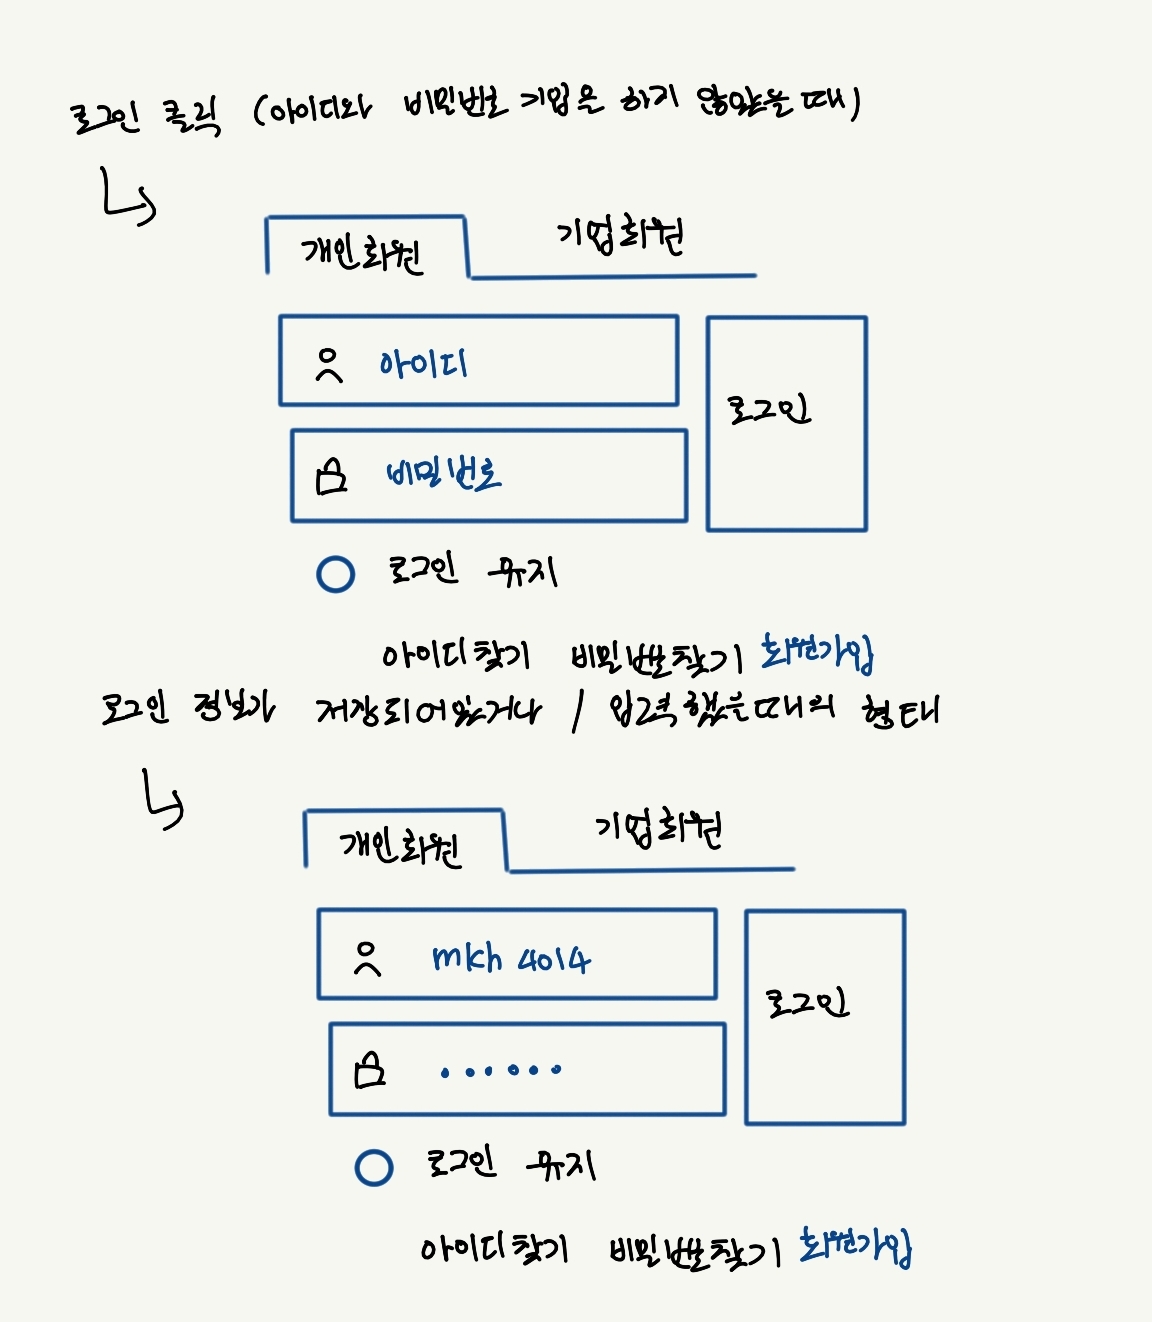 로그인 클릭 (아이디와 비밀번호 기입은 하기 않았을 때)
개인회원 기업회원
아이디
로그인
비밀번호
로그인 유지
아이디찾기 비밀번호찾기 회원가입
로그인 정보가 저장되어있거나 / 입력했을때의 형태
개인회원 기업회원
mkh 4014
로그인
••••••
로그인 유지
아이디찾기 비밀번호찾기 회원가입